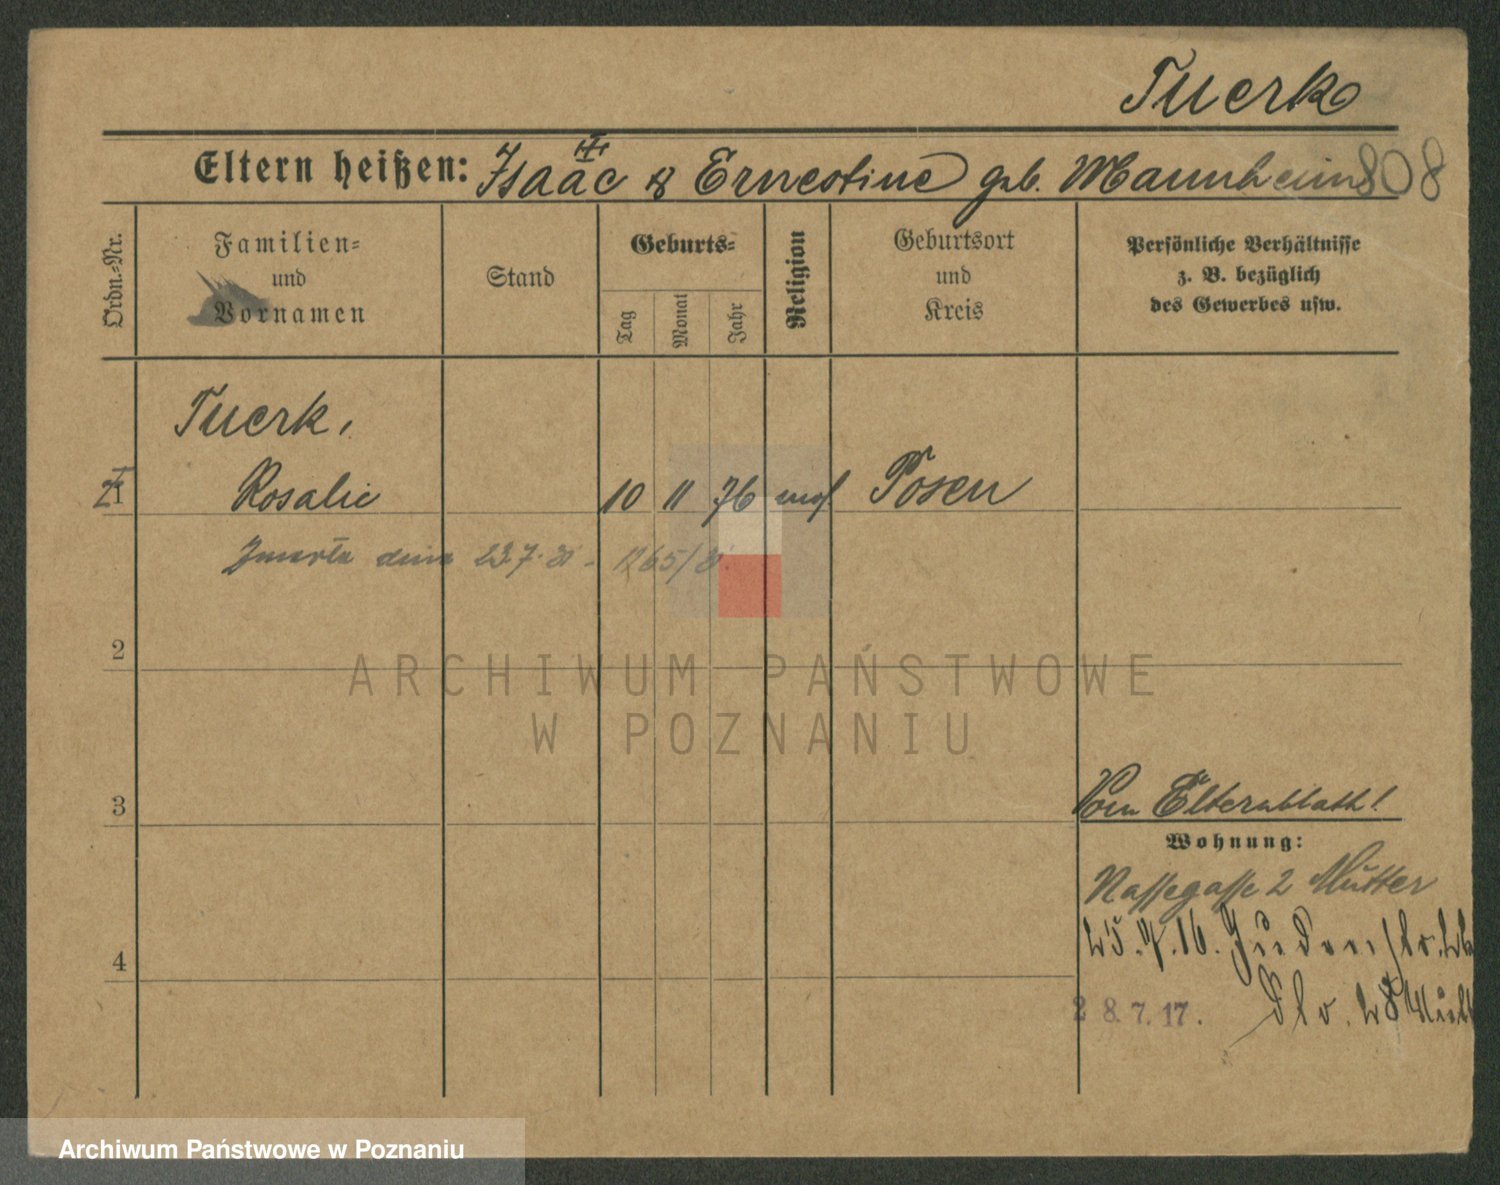 Tuerk
Eltern heißen: Isaac & Ernestine geb. Mannheim 808
Ordn.-Nr.
Familien-
und
Vornamen
Stand
Geburts-
Tag
Monat
Jahr
Religion
Geburtsort
und
Kreis
Persönliche Verhältnisse
z. B. bezüglich
des Gewerbes usw.
Tuerk,
1 Rosalie 10 11 76 mos. Posen
Zmarła dnia 23.7.31 - 1265/31.
2
3
4
Vom Elternblatt!
Wohnung:
Nassegasse 2 Mutter
25.7.16. Juden
28.7.17.
ARCHIWUM PAŃSTWOWE
W POZNANIU
Archiwum Państwowe w Poznaniu